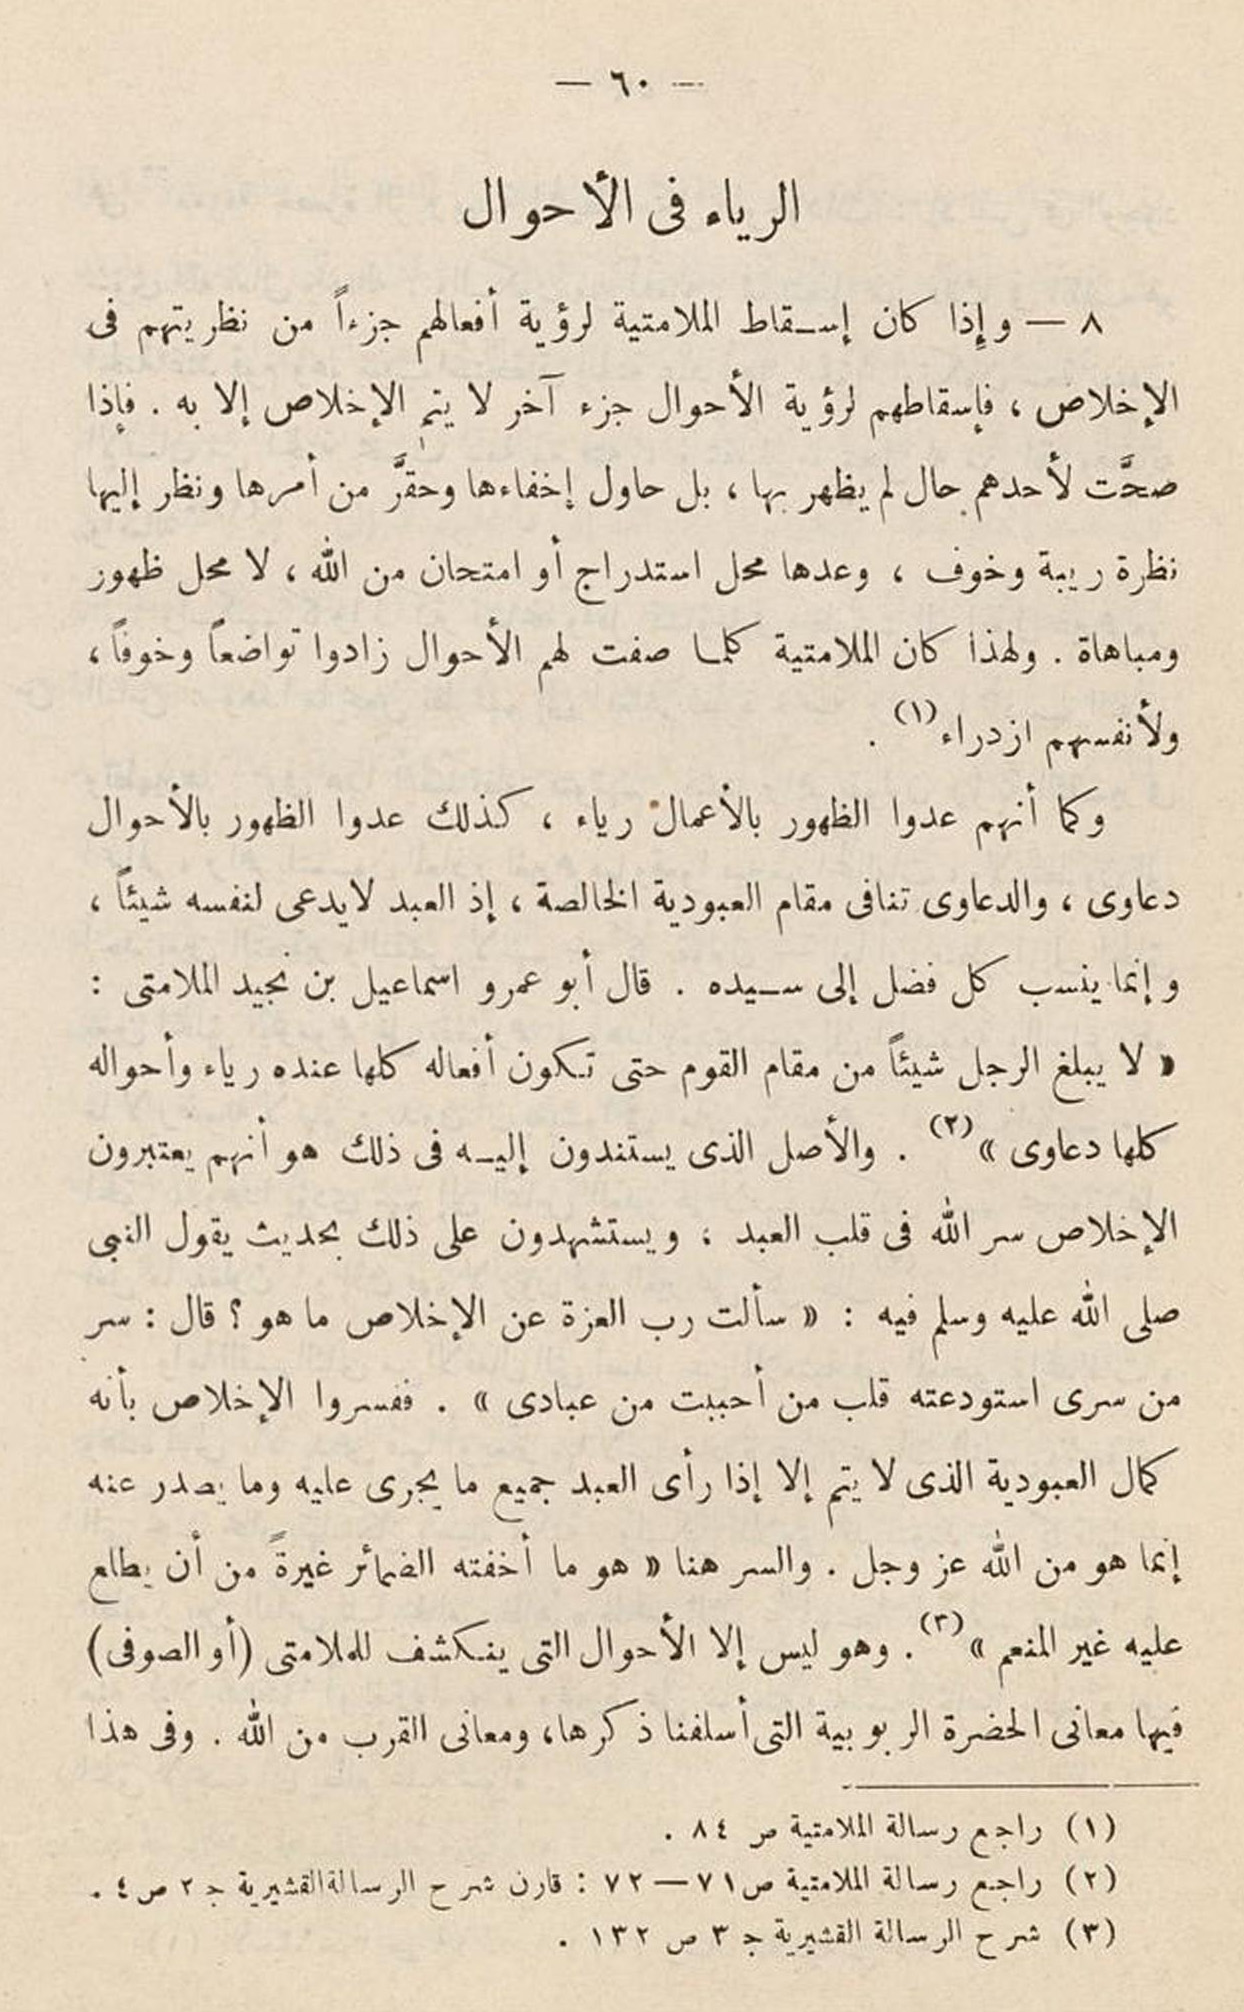 — ٦٠ —
الرياء فى الأحوال
٨ — وإذا كان إسقاط الملامتية لرؤية أفعالهم جزءاً من نظريتهم فى
الإخلاص ، فإسقاطهم لرؤية الأحوال جزء آخر لا يتم الإخلاص إلا به . فإذا
صحَّت لأحدهم حال لم يظهر بها ، بل حاول إخفاءها وحقرَّ من أمرها ونظر إليها
نظرة ريبة وخوف ، وعدها محل استدراج أو امتحان من الله ، لا محل ظهور
ومباهاة . ولهذا كان الملامتية كلما صفت لهم الأحوال زادوا تواضعاً وخوفاً ،
ولأنفسهم ازدراء (١) .
وكما أنهم عدوا الظهور بالأعمال رياء ، كذلك عدوا الظهور بالأحوال
دعاوى ، والدعاوى تنافى مقام العبودية الخالصة ، إذ العبد لايدعى لنفسه شيئاً ،
وإنما ينسب كل فضل إلى سيده . قال أبو عمرو اسماعيل بن نجيد الملامتى :
« لا يبلغ الرجل شيئاً من مقام القوم حتى تكون أفعاله كلها عنده رياء وأحواله
كلها دعاوى » (٢) . والأصل الذى يستندون إليه فى ذلك هو أنهم يعتبرون
الإخلاص سر الله فى قلب العبد ؛ ويستشهدون على ذلك بحديث يقول النبى
صلى الله عليه وسلم فيه : « سألت رب العزة عن الإخلاص ما هو ؟ قال : سر
من سرى استودعته قلب من أحببت من عبادى » . ففسروا الإخلاص بأنه
كمال العبودية الذى لا يتم إلا إذا رأى العبد جميع ما يجرى عليه وما يصدر عنه
إنما هو من الله عز وجل . والسر هنا « هو ما أخفته الضمائر غيرةً من أن يطلع
عليه غير المنعم » (٣) . وهو ليس إلا الأحوال التى ينكشف للملامتى (أو الصوفى)
فيها معانى الحضرة الربوبية التى أسلفنا ذكرها، ومعانى القرب من الله . وفى هذا
(١) راجع رسالة الملامتية ص ٨٤ .
(٢) راجع رسالة الملامتية ص ٧١ — ٧٢ : قارن شرح الرسالة القشيرية ج ٢ ص ٤ .
(٣) شرح الرسالة القشيرية ج ٣ ص ١٣٢ .